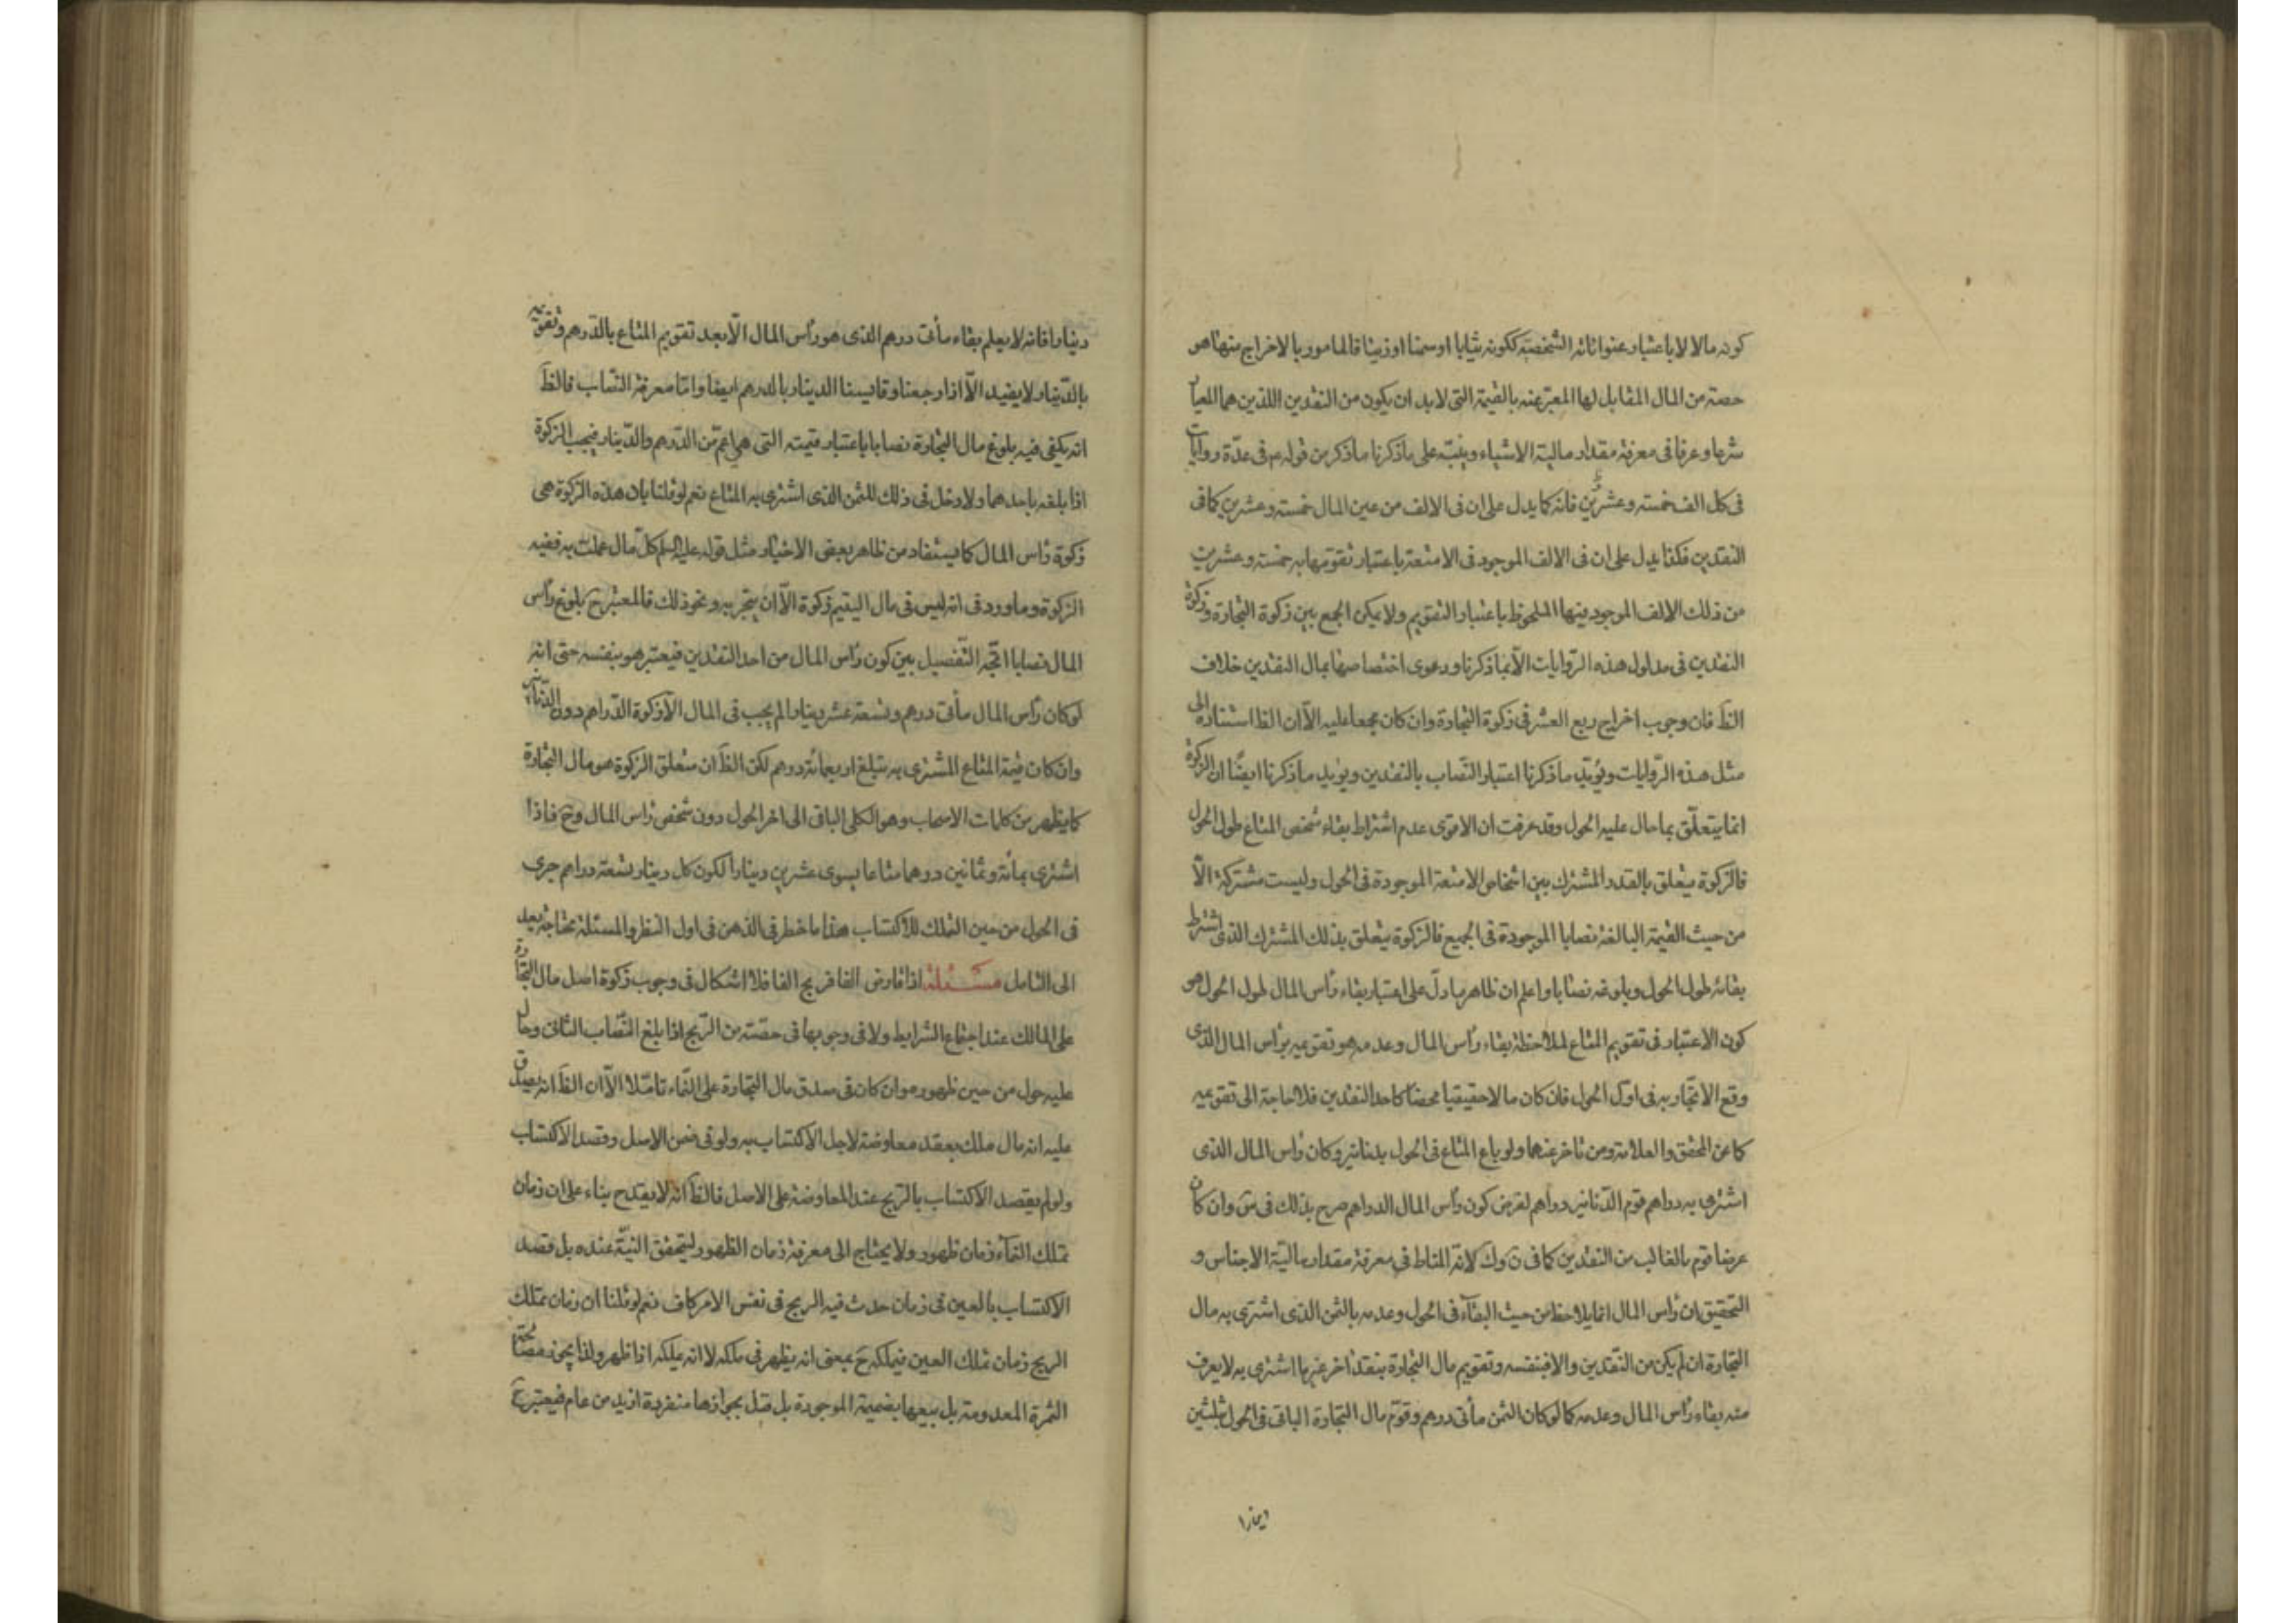 كونه مالا لا باعتبار عنواناته الشخصيّة ككونه ثيابا او سمنا او زيتا فالمامور بالاخراج منها هو
حصته من المال المقابل لها المعبّر عنه بالقيمة التى لابد ان يكون من النقدين اللذين هما المعيار
شرعا وعرفا فى معرفة مقدار مالية الاشياء وينبّه على ماذكرنا ماذكر من قوله ع فى عدّة روايات
فى كل الف خمسة وعشرين فانه كما يدل على ان فى الالف من عين المال خمسة وعشرين كما فى
النقدين فكذا يدل على ان فى الالف الموجود فى الامتعة باعتبار تقويمها به خمسة وعشرين
من ذلك الالف الموجود فيها الملحوظ باعتبار التقويم ولا يمكن الجمع بين زكوة التجارة وزكوة
النقدين فى مدلول هذه الرّوايات الّا بما ذكرنا ودعوى اختصاصها بمال النقدين خلاف
الظ فان وجوب اخراج ربع العشر فى زكوة التجارة وان كان مجمعا عليه الّا ان الظ استناده الى
مثل هذه الرّوايات ويؤيّد ماذكرنا اعتبار النّصاب بالنقدين ويؤيد ماذكرنا ايضًا ان الزكوة
انما يتعلّق بما حال عليه الحول وقد عرفت ان الاقوى عدم اشتراط بقاء شخص المتاع طول الحول
فالزكوة يتعلق بالقدر المشترك بين اشخاص الامتعة الموجودة فى الحول وليست مشتركة الّا
من حيث القيمة البالغة نصابا الموجودة فى الجميع فالزكوة يتعلق بذلك المشترك الذى اشترط
بقائه طول الحول وبلوغه نصابا واعلم ان ظاهر ما دلّ على اعتبار بقاء رأس المال طول الحول هو
كون الاعتبار فى تقويم المتاع لملاحظة بقاء رأس المال وعدمه هو تقويمه برأس المال الذى
وقع الاتّجار به فى اوّل الحول فان كان مالا حقيقيا محضا كاحد النقدين فلا حاجة الى تقويمه
كما عن المحقق والعلامة ومن تاخر عنهما ولو باع المتاع فى الحول بدنانير وكان رأس المال الذى
اشترى به دراهم قوم الدّنانير دراهم لفرض كون رأس المال الدراهم صرح بذلك فى وان كان
عرضا قوم بالغالب من النقدين كما فى لانّه المناط فى معرفة مقدار ماليّة الاجناس و
التحقيق ان رأس المال انما يلاحظ من حيث البقآء فى الحول وعدمه بالثمن الذى اشترى به مال
التجارة ان لم يكن من النّقدين والا فبنفسه وتقويم مال التجارة بنقد اخر غير ما اشترى به لا يعرف
منه بقاء رأس المال وعدمه كما لو كان الثمن مأتى درهم وقوّم مال التجارة الباقى فى الحول بثلثين
دينارا فانه لا يعلم بقاء مأتى درهم الذى هو رأس المال الّا بعد تقويم المتاع بالدّرهم وتقويمه
بالدّينار لا يفيد الّا اذا رجعنا وقايسنا الدينار بالدرهم ايضا وامّا معرفة النّصاب فالظ
انه يكفى فيه بلوغ مال التجارة نصابا باعتبار قيمته التى هى اعمّ من الدّرهم والدّينار فيجب الزكوة
اذا بلغه باحدهما ولا دخل فى ذلك للثمن الذى اشترى به المتاع نعم لو قلنا بان هذه الزكوة هى
زكوة رأس المال كما يستفاد من ظاهر بعض الاخبار مثل قوله عليه السلم كلّ مال عملت به ففيه
الزكوة وما ورد فى انه ليس فى مال اليتيم زكوة الّا ان يتجر به ونحو ذلك فالمعتبر ح بلوغ رأس
المال نصابا اتّجه التّفصيل بين كون رأس المال من احد النقدين فيعتبر هو بنفسه حتى انه
لو كان رأس المال مأتى درهم وتسعة عشر دينارا لم يجب فى المال الّا زكوة الدّراهم دون الدّنانير
وان كان قيمة المتاع المشترى به تبلغ اربعمائة درهم لكن الظ ان متعلق الزكوة هو مال التجارة
كما يظهر من كلمات الاصحاب وهو الكلى الباقى الى اخر الحول دون شخص رأس المال وح فاذا
اشترى بمائة وثمانين درهما متاعا يسوى عشرين دينارا لكون كل دينار تسعة دراهم جرى
فى الحول من حين التملك للاكتساب هذا ما خطر فى الذهن فى اول النظر والمسئلة محتاجة بعد
الى التامل مسئلة اذا قارض الفا فربح الفا فلا اشكال فى وجوب زكوة اصل مال التجارة
على المالك عند اجتماع الشرايط ولا فى وجوبها فى حصّته من الرّبح اذا بلغ النّصاب الثانى وحال
عليه حول من حين ظهوره وان كان فى صدق مال التجارة على النّماء تامّلا الّا ان الظ انه يصدق
عليه انه مال ملك بعقد معاوضة لاجل الاكتساب به ولو فى ضمن الاصل وقصد الاكتساب
ولو لم يقصد الاكتساب بالرّبح عند المعاوضة على الاصل فالظ انّه لا يقدح بناء على ان زمان
تملك النمآء زمان ظهوره ولا يحتاج الى معرفة زمان الظهور ليتحقق النيّة عنده بل قصد
الاكتساب بالعين فى زمان حدث فيه الربح فى نفس الامر كاف نعم لو قلنا ان زمان تملك
الربح زمان تملك العين فيملكه ح بمعنى انه يظهر فى ملكه لا انه يملكه اذا ظهر ولذا يجوز مصالحة
الثمرة المعدومة بل بيعها بضميمة الموجودة بل قيل بجوازها منفردة ازيد من عام فيعتبر ح